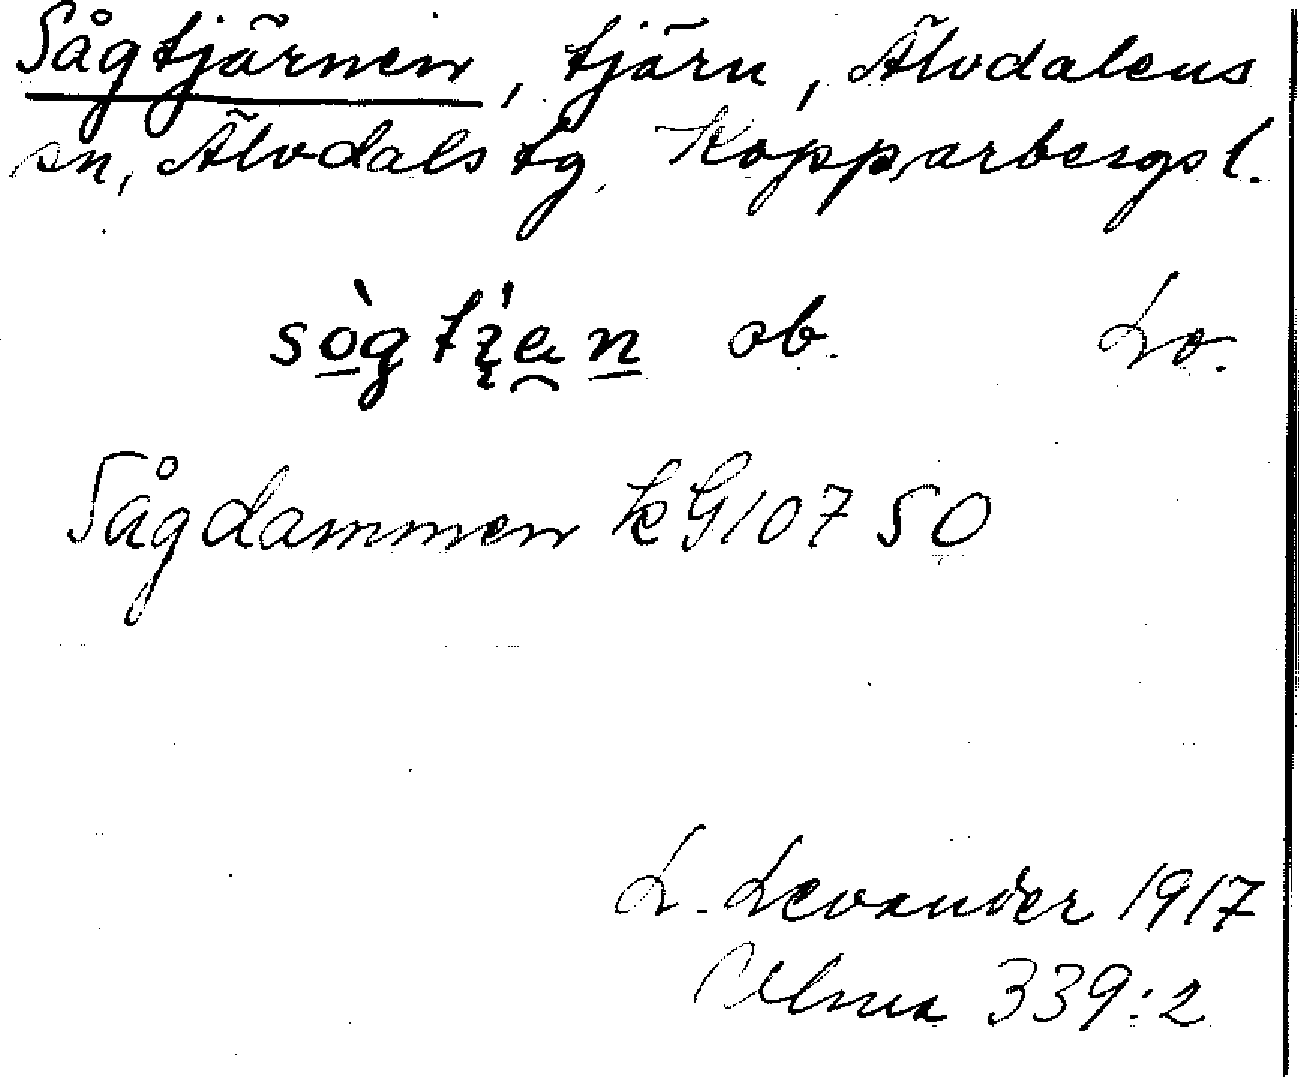 Sågtjärnen, tjärn, Älvdalens
sn, Älvdals tg, Kopparbergs l.
ob. Lo.
Sågdammen kG10750
L. Levander 1917
Ulma 339:2